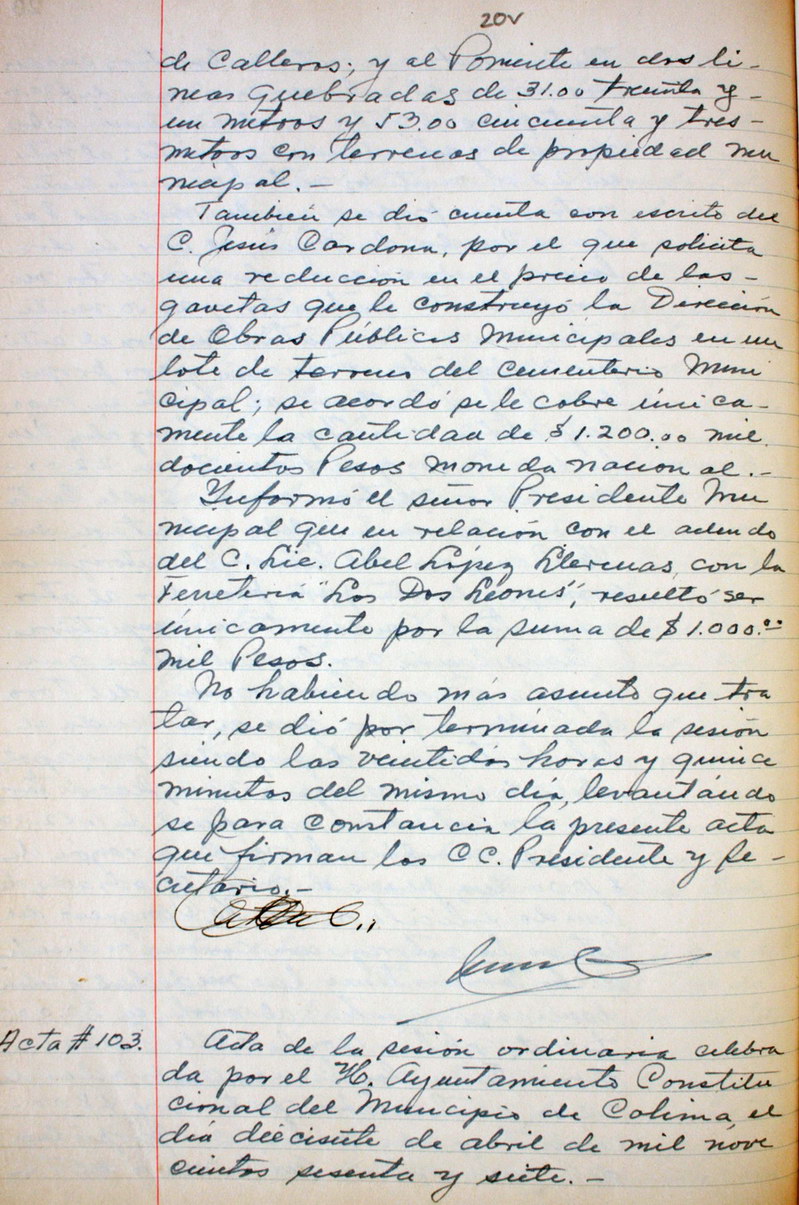 20v
de Calleros; y al Poniente en dos li-
neas quebradas de 31.00 treinta y-
un metros y 53.00 cincuenta y tres-
metros con terrenos de propiedad mu
nicipal.-
También se dió cuenta con escrito del
C. Jesús Cardona, por el que solicita
una reducción en el precio de las-
gavetas que le construyó la Dirección
de Obras Públicas Municipales en un
lote de terreno del cementerio Muni
cipal; se acordó se le cobre única-
mente la cantidad de $1.200.00 mil
docientos Pesos moneda nacional.-
Informó el señor Presidente Mu
nicipal que en relación con el adeudo
del C. Lic. Abel López Llerenas, con la
Ferretería "Los Dos Leones", resultó ser
únicamente por la suma de $1.000.00
mil Pesos.
No habiendo más asunto que tra
tar, se dió por terminada la sesión
siendo las veintidós horas y quince
minutos del mismo día, levantándo
se para constancia la presente acta
que firman los CC. Presidente y Se-
cretario.-
Acta # 103.
Acta de la sesión ordinaria celebra
da por el H. Ayuntamiento Constitu
cional del Municipio de Colima, el
día diecisiete de abril de mil nove
cientos sesenta y siete.-